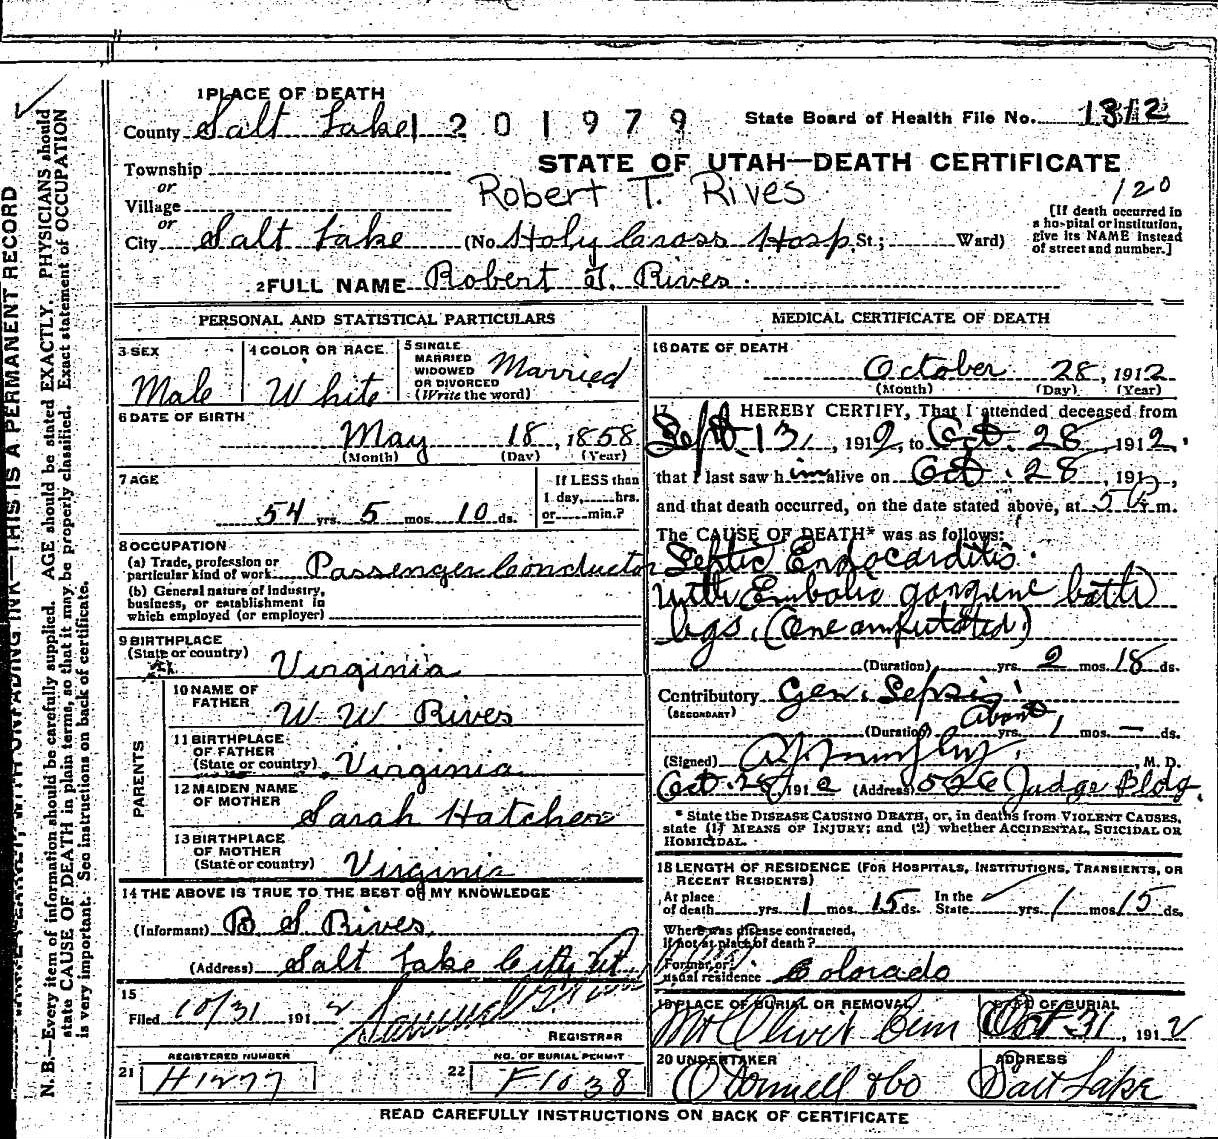 1 PLACE OF DEATH
County Salt Lake 1 2 0 1 9 7 9 State Board of Health File No. 1312
Township
or
Village
or
STATE OF UTAH—DEATH CERTIFICATE
Robert T. Rives
120
City Salt Lake (No. Holy Cross Hosp. St.; Ward)
[If death occurred in
a hospital or institution,
give its NAME instead
of street and number.]
2 FULL NAME Robert T. Rives.
PERSONAL AND STATISTICAL PARTICULARS
3 SEX
Male
4 COLOR OR RACE
White
5 SINGLE
MARRIED
WIDOWED
OR DIVORCED
(Write the word)
Married
6 DATE OF BIRTH
May 18, 1858
(Month) (Day) (Year)
7 AGE
54 yrs. 5 mos. 10 ds.
If LESS than
1 day, hrs.
or min.?
8 OCCUPATION
(a) Trade, profession or
particular kind of work Passenger Conductor
(b) General nature of industry,
business, or establishment in
which employed (or employer)
9 BIRTHPLACE
(State or country)
Virginia
PARENTS
10 NAME OF
FATHER
W W Rives
11 BIRTHPLACE
OF FATHER
(State or country) Virginia
12 MAIDEN NAME
OF MOTHER
Sarah Hatcher
13 BIRTHPLACE
OF MOTHER
(State or country) Virginia
14 THE ABOVE IS TRUE TO THE BEST OF MY KNOWLEDGE
(Informant) B S Rives
(Address) Salt Lake City Ut
15
Filed 10/31 1912
REGISTRAR
REGISTERED NUMBER
21 H1277
NO. OF BURIAL PERMIT
22 F1038
MEDICAL CERTIFICATE OF DEATH
16 DATE OF DEATH
October 28, 1912
(Month) (Day) (Year)
17 I HEREBY CERTIFY, That I attended deceased from
Sept 13, 1912, to Oct. 28 1912.
that I last saw him alive on Oct. 28, 191
and that death occurred, on the date stated above, at 5 P. m.
The CAUSE OF DEATH* was as follows:
Septic Endocarditis.
with Embolic gangrene both
legs. (One amputated.)
(Duration) yrs. 2 mos. 18 ds.
Contributory Gen. Sepsis
(SECONDARY)
(Duration) about yrs. 1 mos. — ds.
(Signed) M. D.
Oct. 28, 1912 (Address) 526 Judge Bldg.
* State the DISEASE CAUSING DEATH, or, in deaths from VIOLENT CAUSES,
state (1) MEANS OF INJURY; and (2) whether ACCIDENTAL, SUICIDAL OR
HOMICIDAL.
18 LENGTH OF RESIDENCE (FOR HOSPITALS, INSTITUTIONS, TRANSIENTS, OR
RECENT RESIDENTS)
At place
of death yrs. 1 mos. 15 ds. In the
State yrs. 1 mos. 15 ds.
Where was disease contracted,
if not at place of death?
Former or
usual residence Colorado
19 PLACE OF BURIAL OR REMOVAL
Mt Olivet Cem
DATE OF BURIAL
Oct 31, 1912
20 UNDERTAKER
O'Donnell & Co
ADDRESS
Salt Lake
READ CAREFULLY INSTRUCTIONS ON BACK OF CERTIFICATE
UNFADING INK—THIS IS A PERMANENT RECORD
N. B.—Every item of information should be carefully supplied. AGE should be stated EXACTLY. PHYSICIANS should
state CAUSE OF DEATH in plain terms, so that it may be properly classified. Exact statement of OCCUPATION
is very important. See instructions on back of certificate.